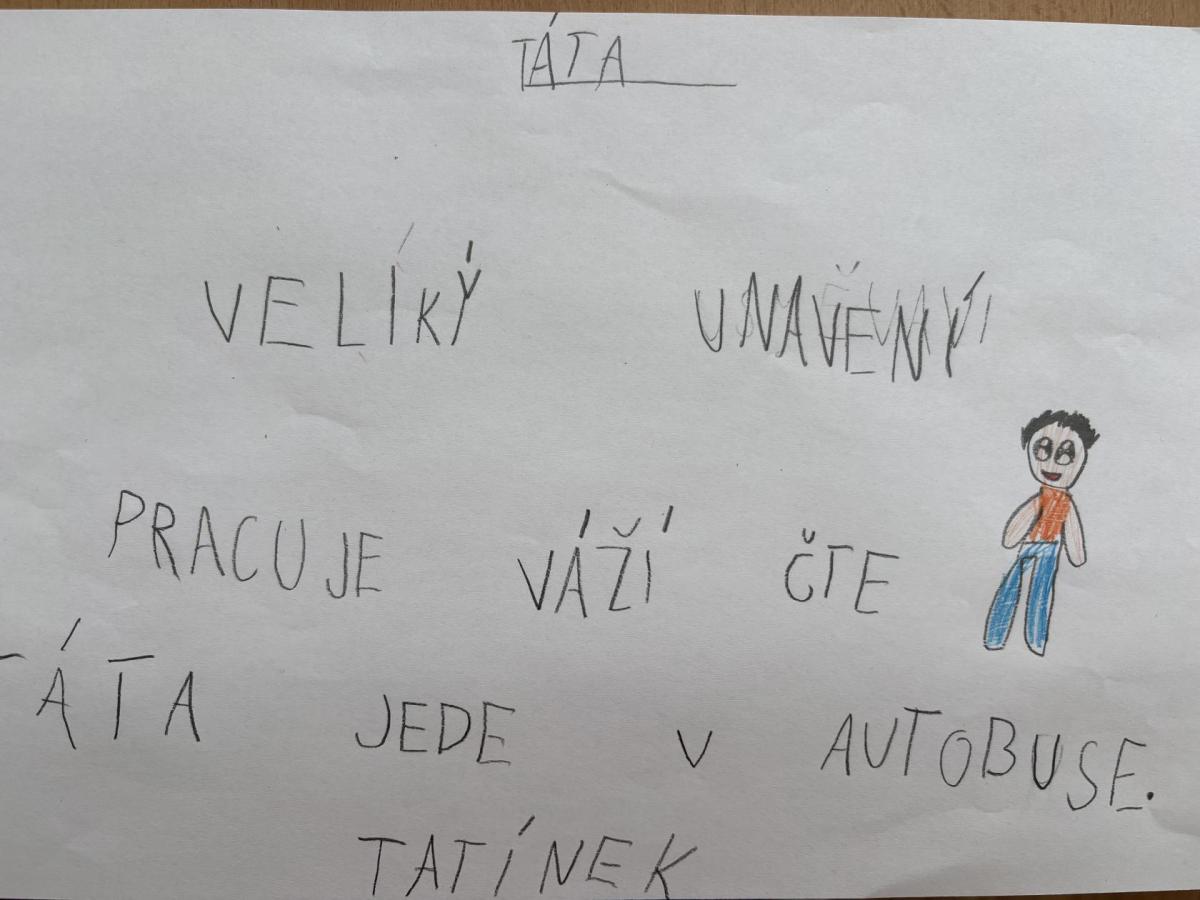 TÁTA
VELÍKÝ UNAVĚNÝ
PRACUJE VÁŽÍ ČTE
TÁTA JEDE V AUTOBUSE.
TATÍNEK